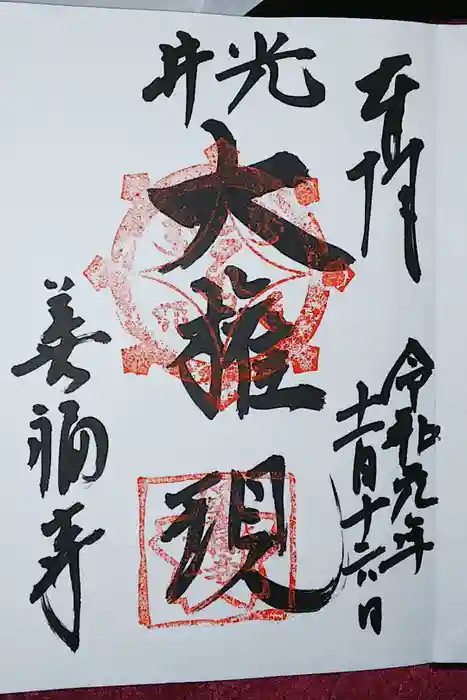 奉拝
令和元年
十一月十六日
井光
大権現
善福寺